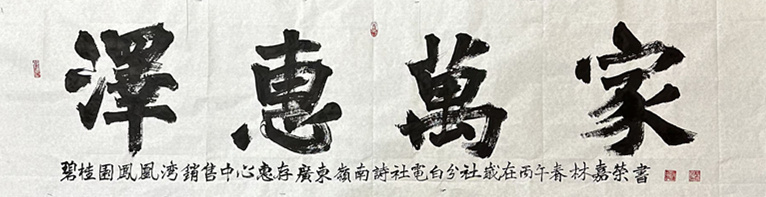 澤惠萬家
碧桂園鳳凰湾銷售中心惠存廣東嶺南詩社電白分社歲在丙午春林嘉荣書